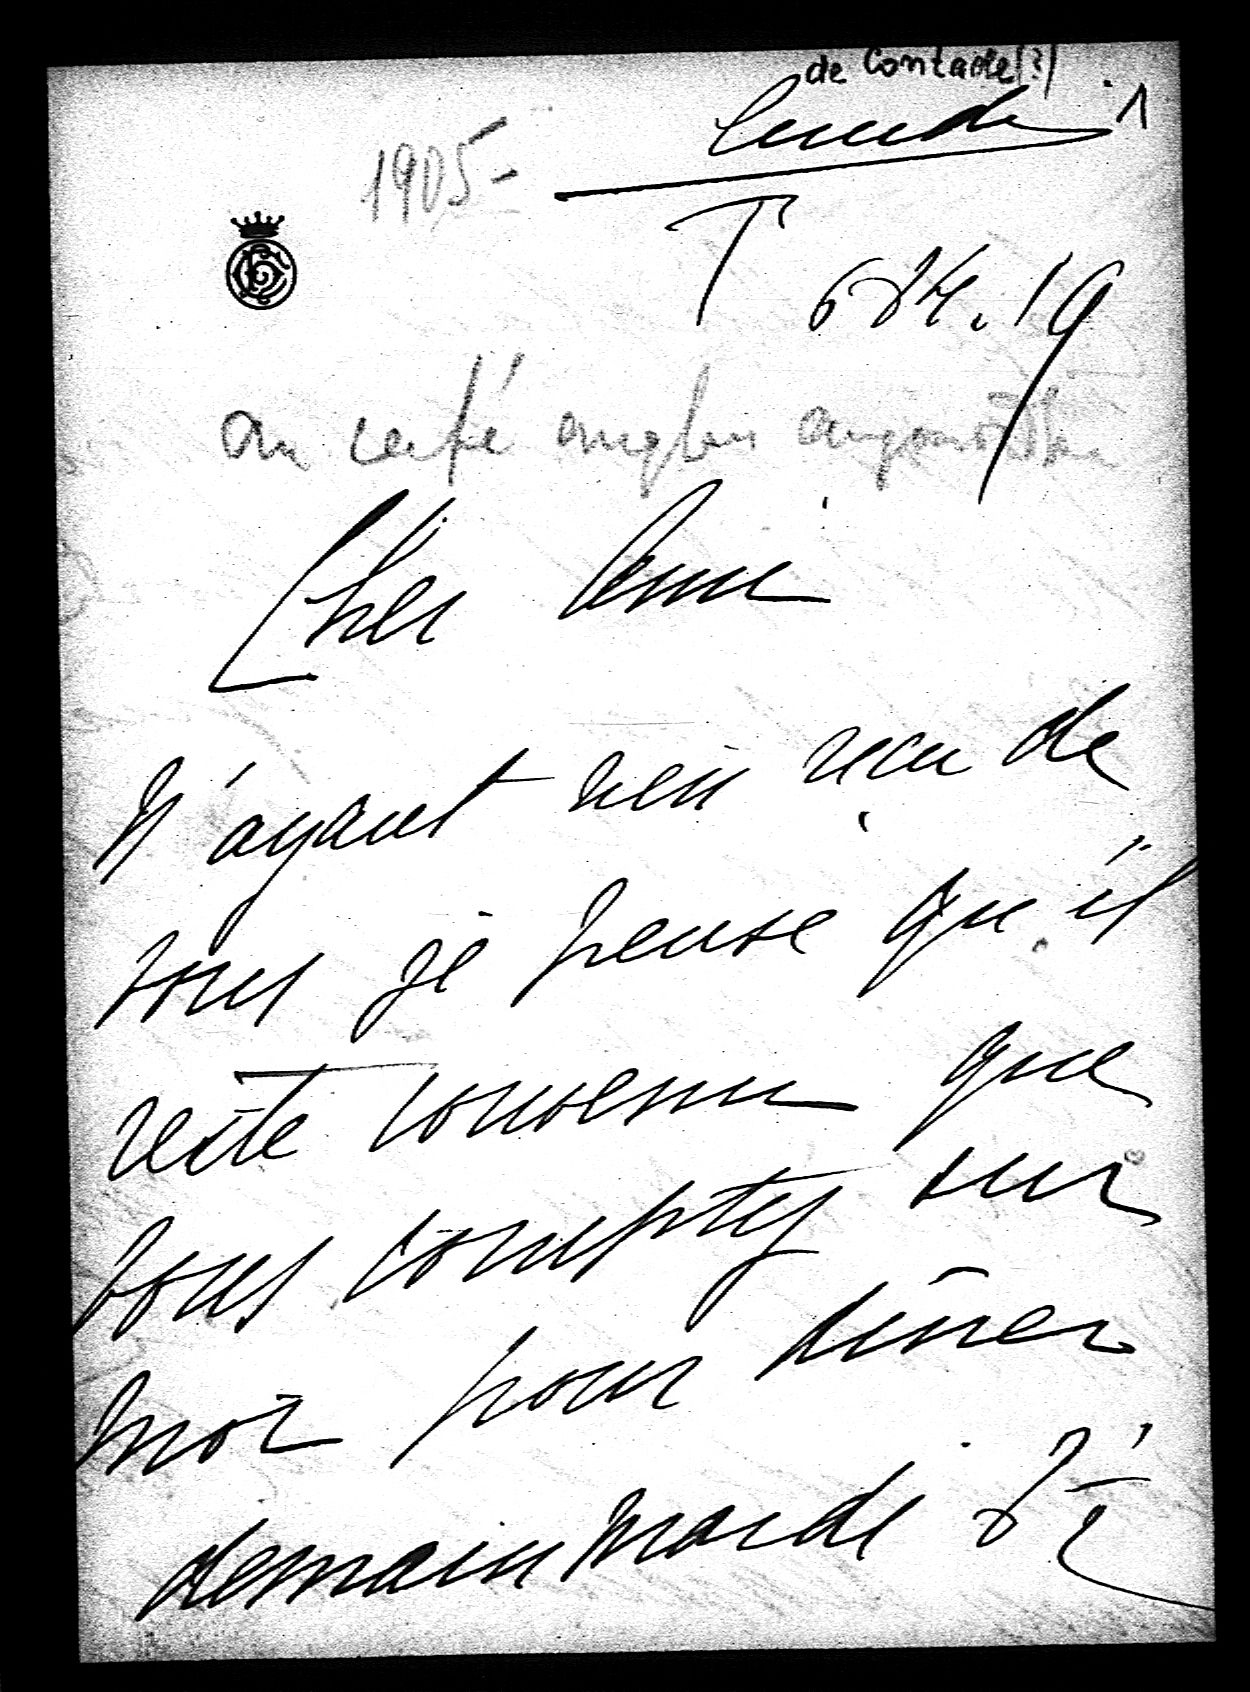 de Contades(?)
Lundi 1
1905-
T 684.19
au café anglais aujourd'hui
Cher Ami
N'ayant rien reçu de
vous je pense qu'il
reste convenu que
vous comptez sur
moi pour dîner
demain mardi 8h